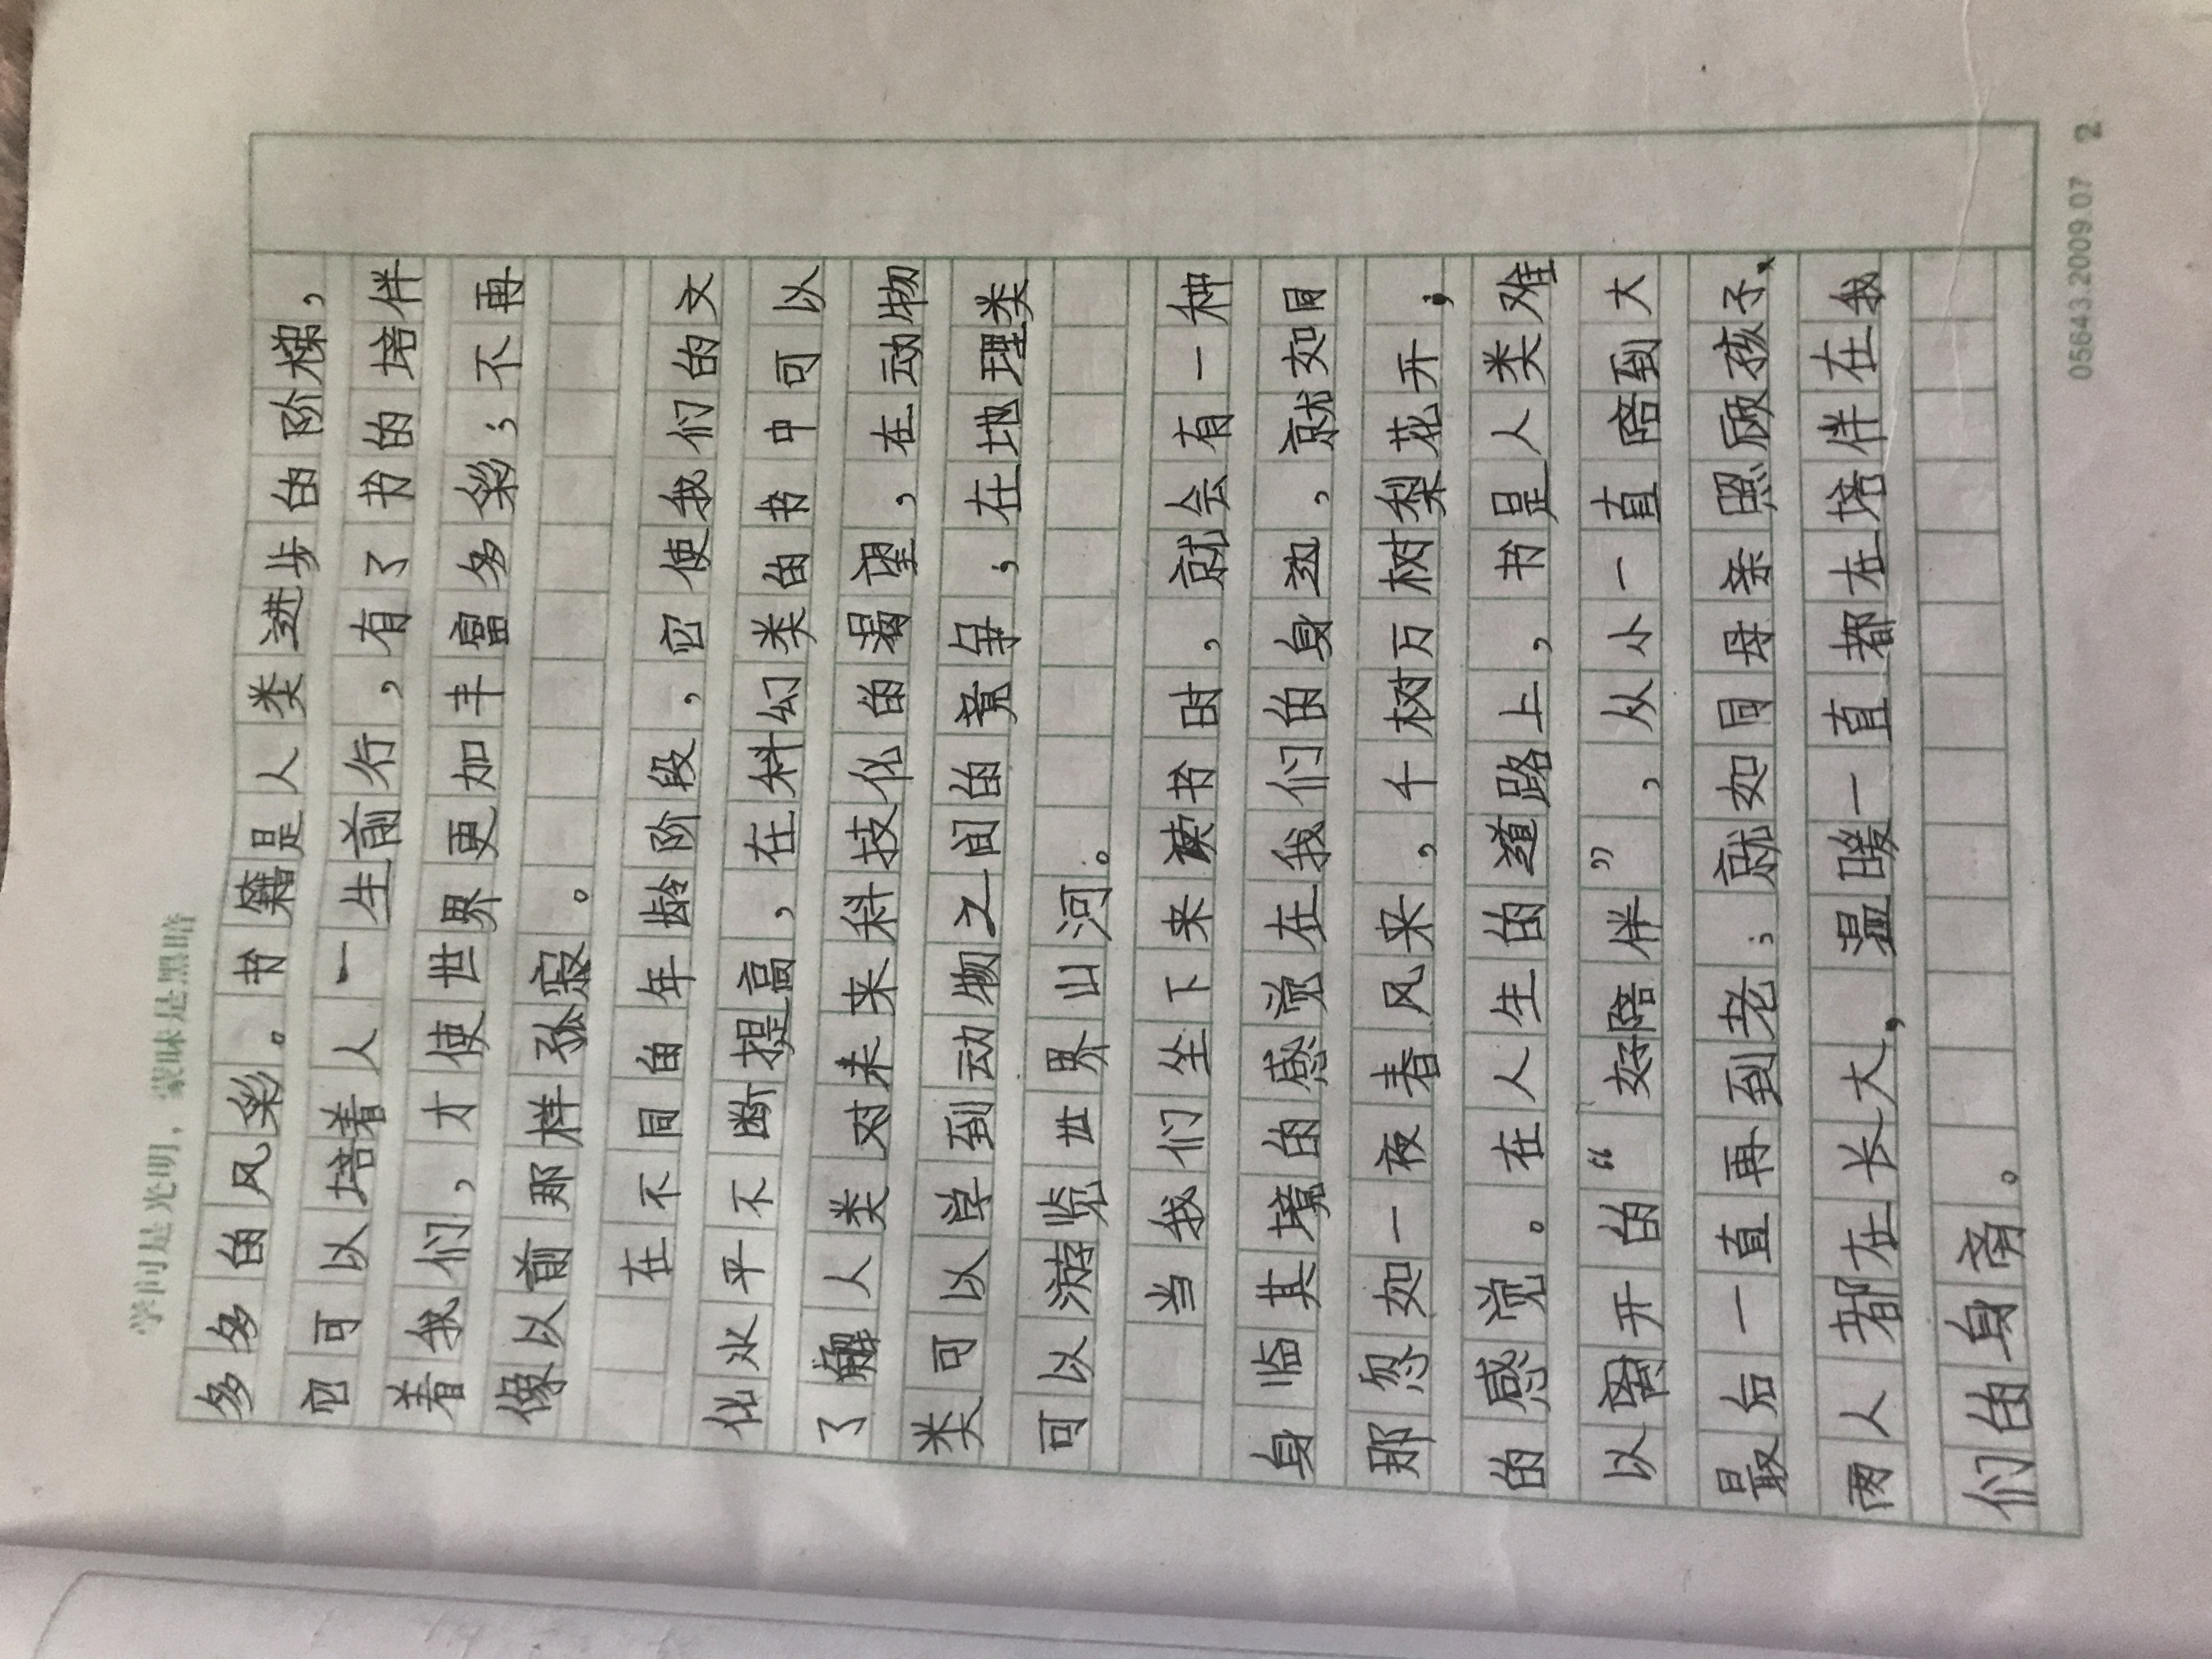 学问是光明，蒙昧是黑暗
多多的风彩。书籍是人类进步的阶梯，
它可以培着人一生前行，有了书的培伴
着我们，才使世界更加丰富多彩；不再
像以前那样孤寂。
在不同的年龄阶段，它使我们的文
化水平不断提高，在科幻类的书中可以
了解人类对未来科技化的渴望，在动物
类可以学到动物之间的竞争，在地理类
可以游览世界山河。
当我们坐下来读书时，就会有一种
身临其境的感觉在我们的身边，就如同
那忽如一夜春风来，千树万树梨花开；
的感觉。在人生的道路上，书是人类难
以离开的“好陪伴”，从小一直陪到大
最后一直再到老；就如同母亲照顾孩子、
两人都在长大，温暖一直都在培伴在我
们的身旁。
05643.2009.07 2